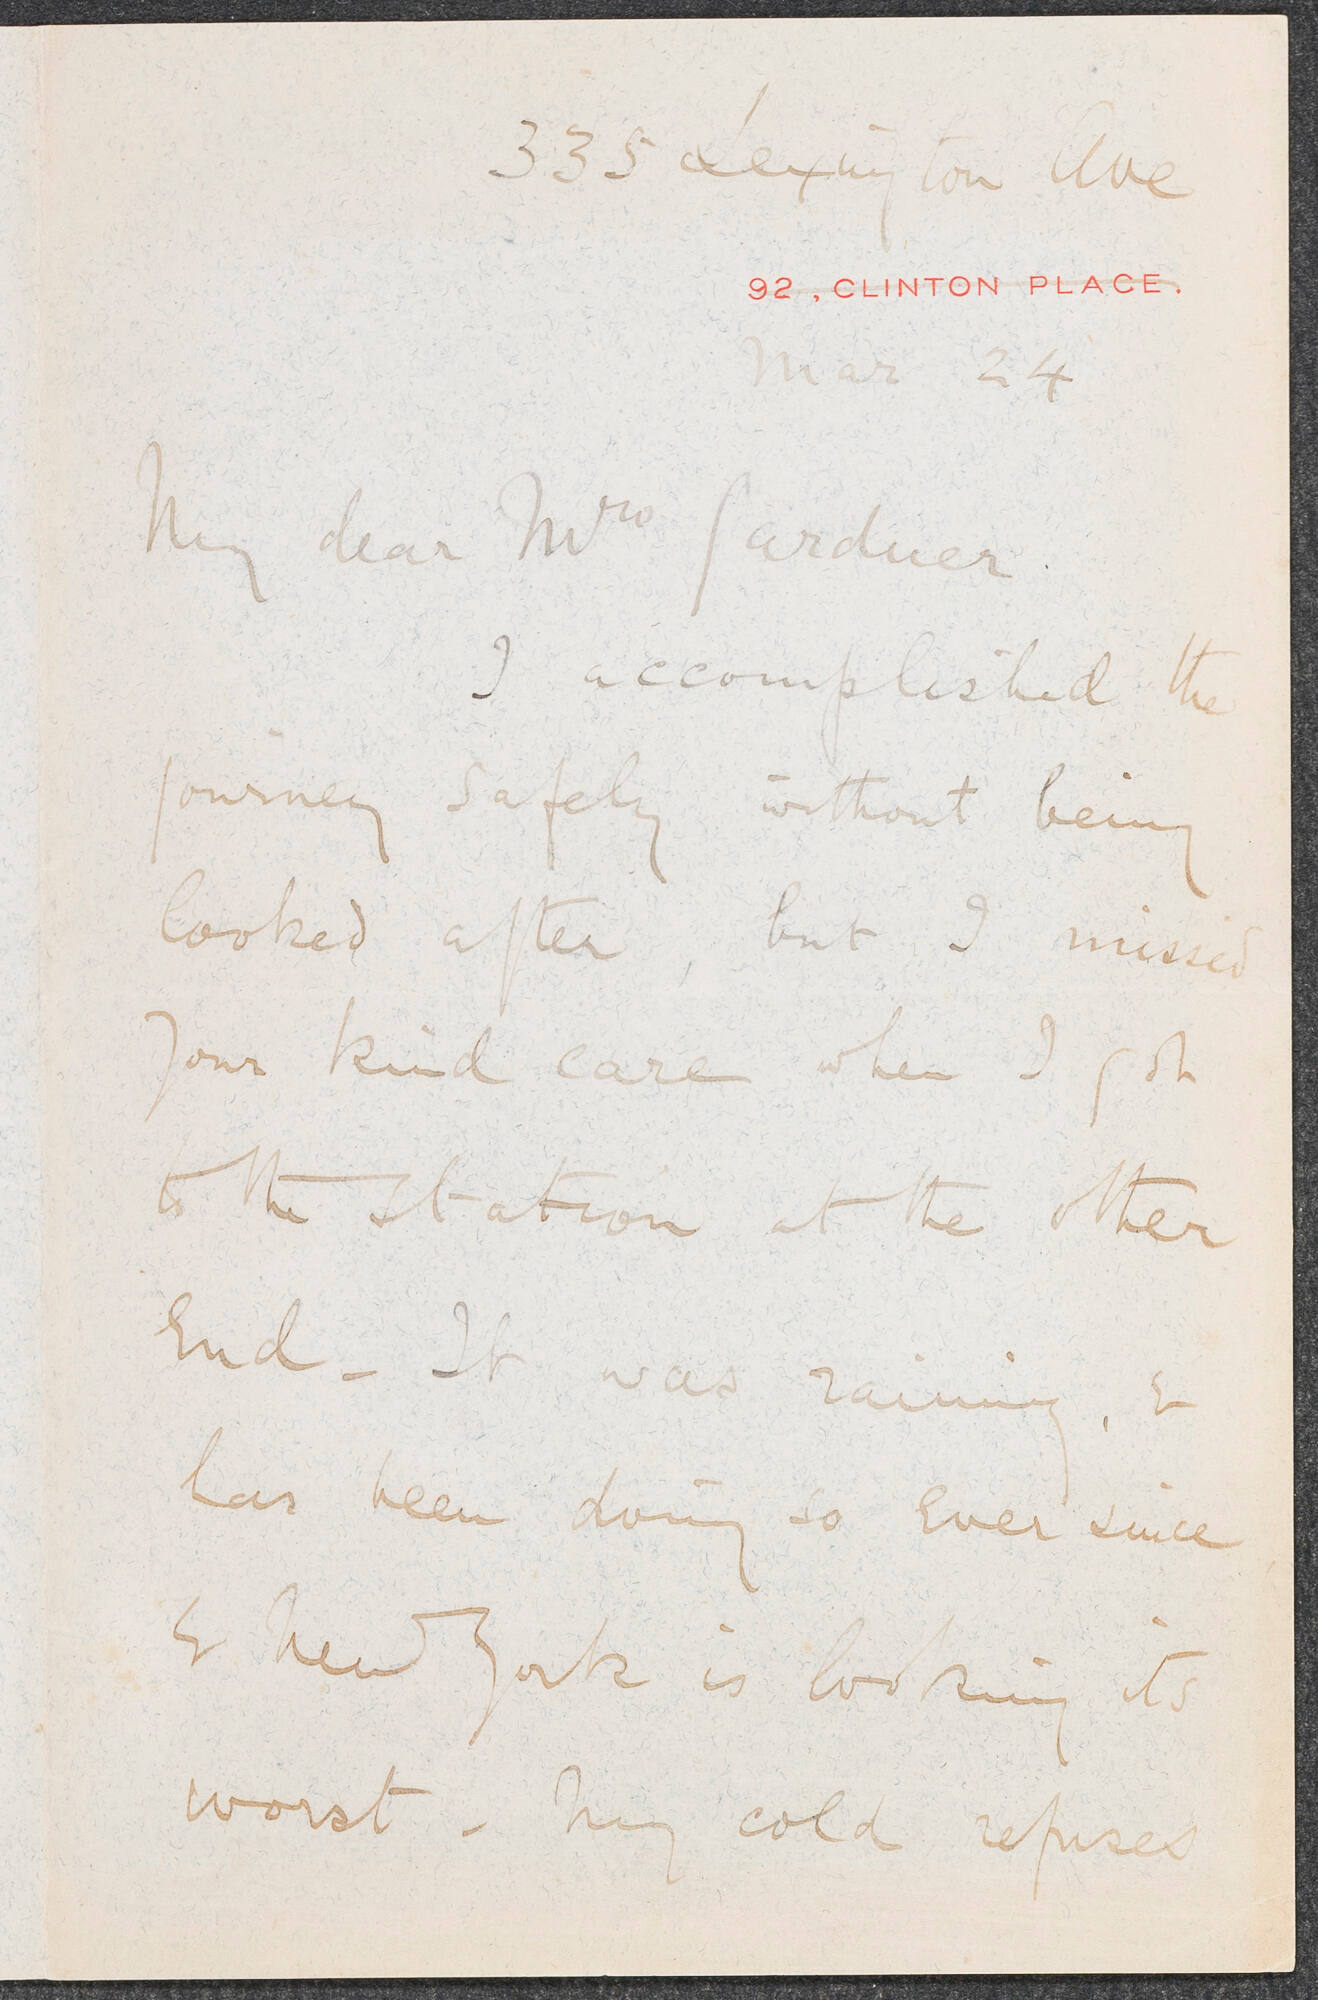 335 Lexington Ave
92, CLINTON PLACE.
Mar 24
My dear Mrs Gardner.
I accomplished the
journey safely without being
looked after, but I missed
your kind care when I got
to the station at the other
End - It was raining, &
has been doing so Ever since
& New York is looking its
worst - My cold refuses